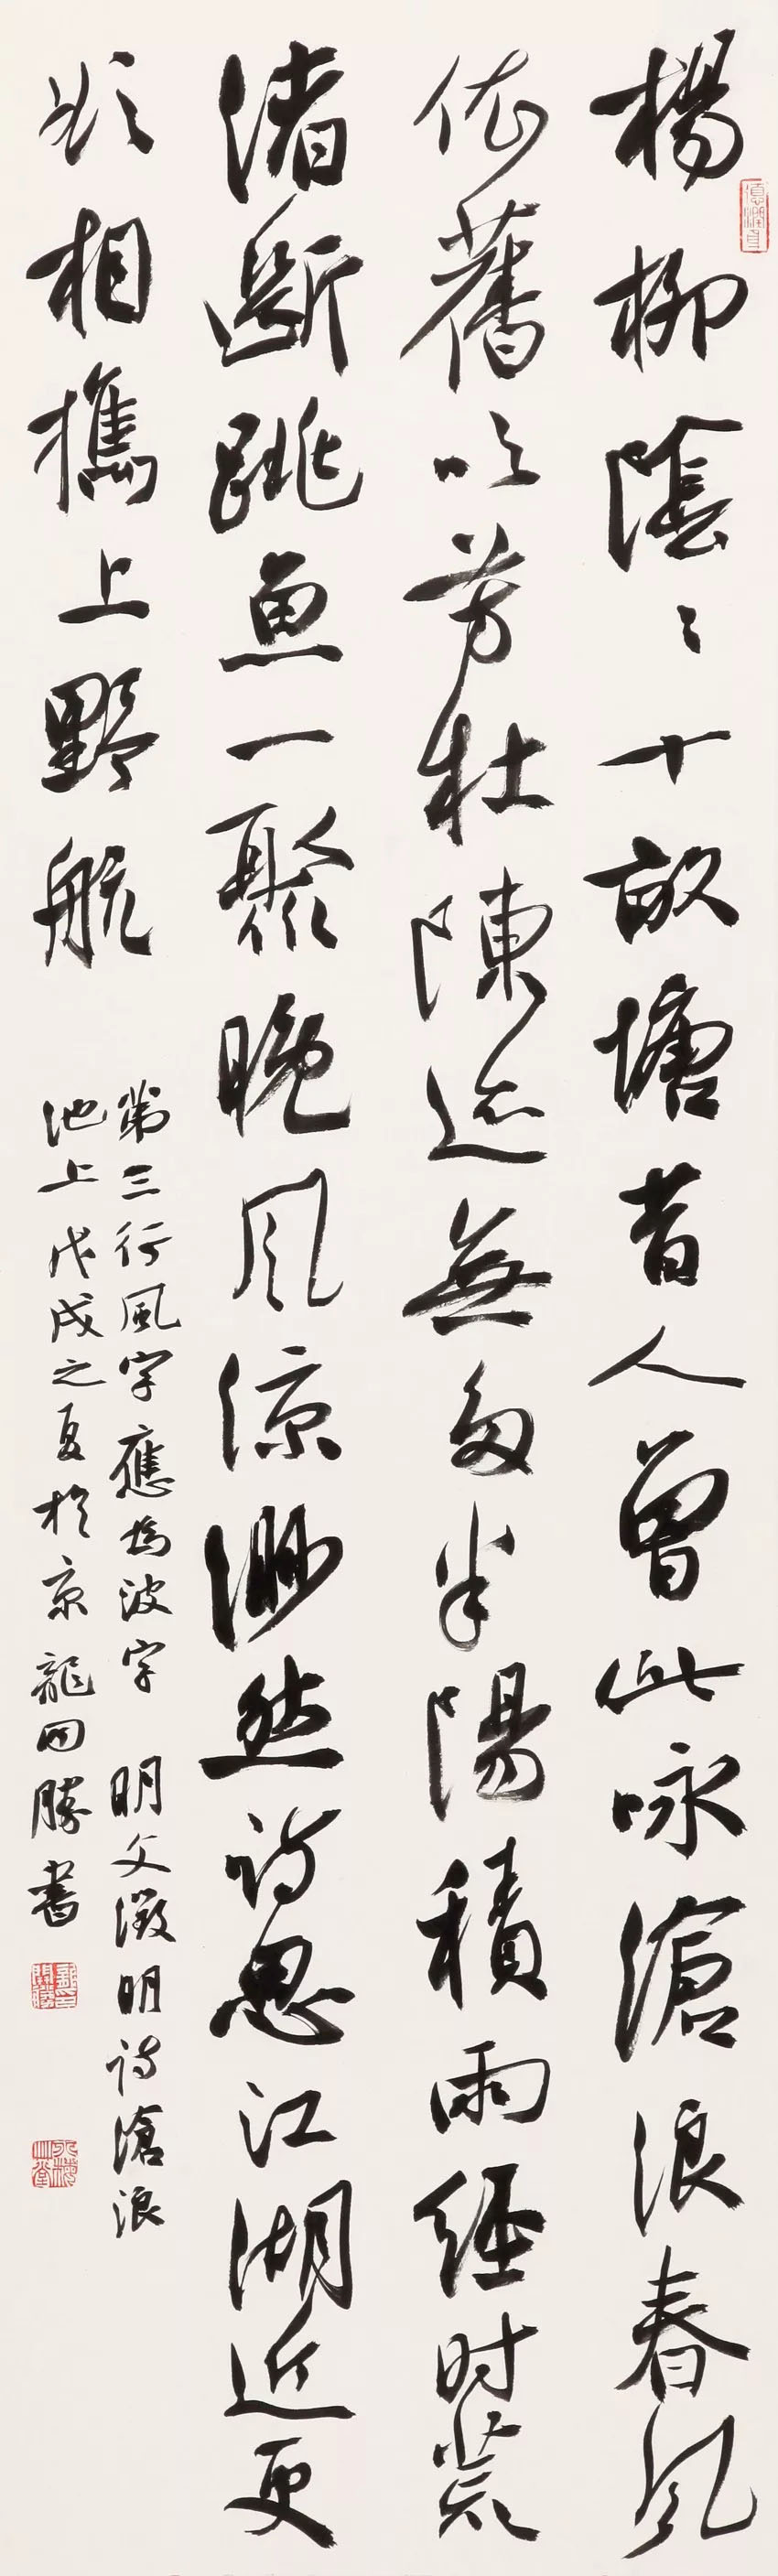 德潤身
楊柳陰〻十畝塘昔人曾此咏滄浪春風
依舊吹芳杜陳迹無多半陽積雨經时荒
渚斷跳魚一聚晚風涼渺然詩思江湖近更
欲相攜上野航
第三行風字應為波字 明文徵明詩滄浪
池上戊戌之夏於京龍開勝書